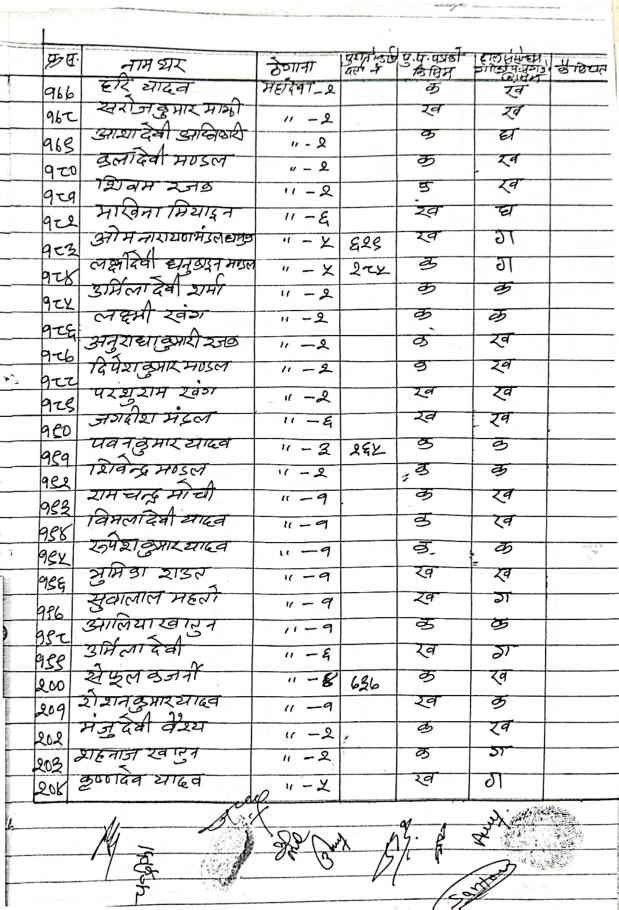 क्र.सं. नाम थर ठेगाना दर्ता नं कैफियत
१७७ हरि यादव महादेवा-२ क ख
१७८ सरोज कुमार माझी " -२ ख ख
१७९ आशा देवी अधिकारी " -२ क घ
१८० कलादेवी मण्डल " -२ क ख
१८१ शिवम रजक " -२ क ख
१८२ माखिना मियाइन " -६ ख घ
१८३ ओम नारायण मंडल धानुक " -५ ६२९ ख ग
१८४ लक्ष्मीदेवी धनुकाइन मण्डल " -५ २८५ क ग
१८५ उर्मिला देवी शर्मा " -२ क क
१८६ लक्ष्मी खंग " -२ क क
१८७ अनुराधा कुमारी रजक " -२ क ख
१८८ दिपेश कुमार मण्डल " -२ क ख
१८९ परशुराम खंग " -२ ख ख
१९० जगदीश मंडल " -६ ख ख
१९१ पवन कुमार यादव " -३ २६५ क क
१९२ शिवेन्द्र मण्डल " -२ क क
१९३ राम चन्द्र मोची " -१ क ख
१९४ विमलादेवी यादव " -१ क ख
१९५ रुपेश कुमार यादव " -१ क क
१९६ भुमिका राउत " -१ ख ख
१९७ सुवालाल महतो " -१ ख ग
१९८ आलिया खातुन " -१ क क
१९९ उर्मिला देवी " -६ ख ग
२०० सेफूल कजर्नी ६३७ क ख
२०१ रोशन कुमार यादव " -१ ख क
२०२ मंजु देवी वैश्य " -२ क ख
२०३ शहनाज खातुन " -२ क ग
२०४ कृष्णदेव यादव " -५ ख ग